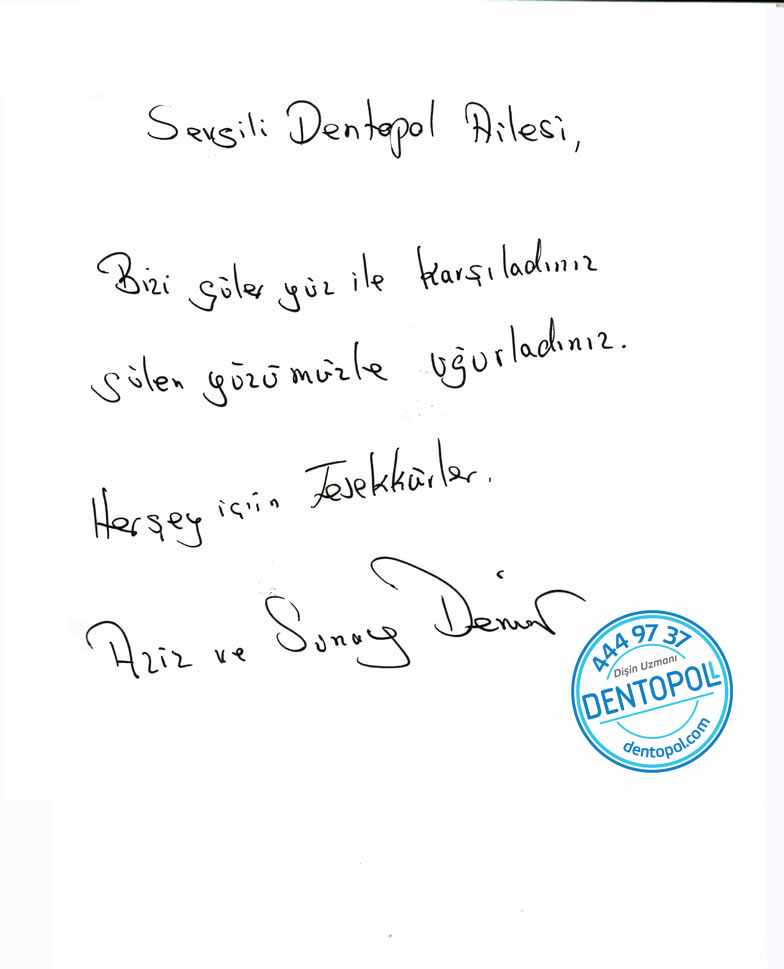 Sevgili Dentopol Ailesi,
Bizi güler yüz ile karşıladınız
gülen yüzümüzle uğurladınız.
Herşey için Teşekkürler.
Aziz ve Sunay Demir
444 97 37
Dişin Uzmanı
DENTOPOLL
dentopol.com